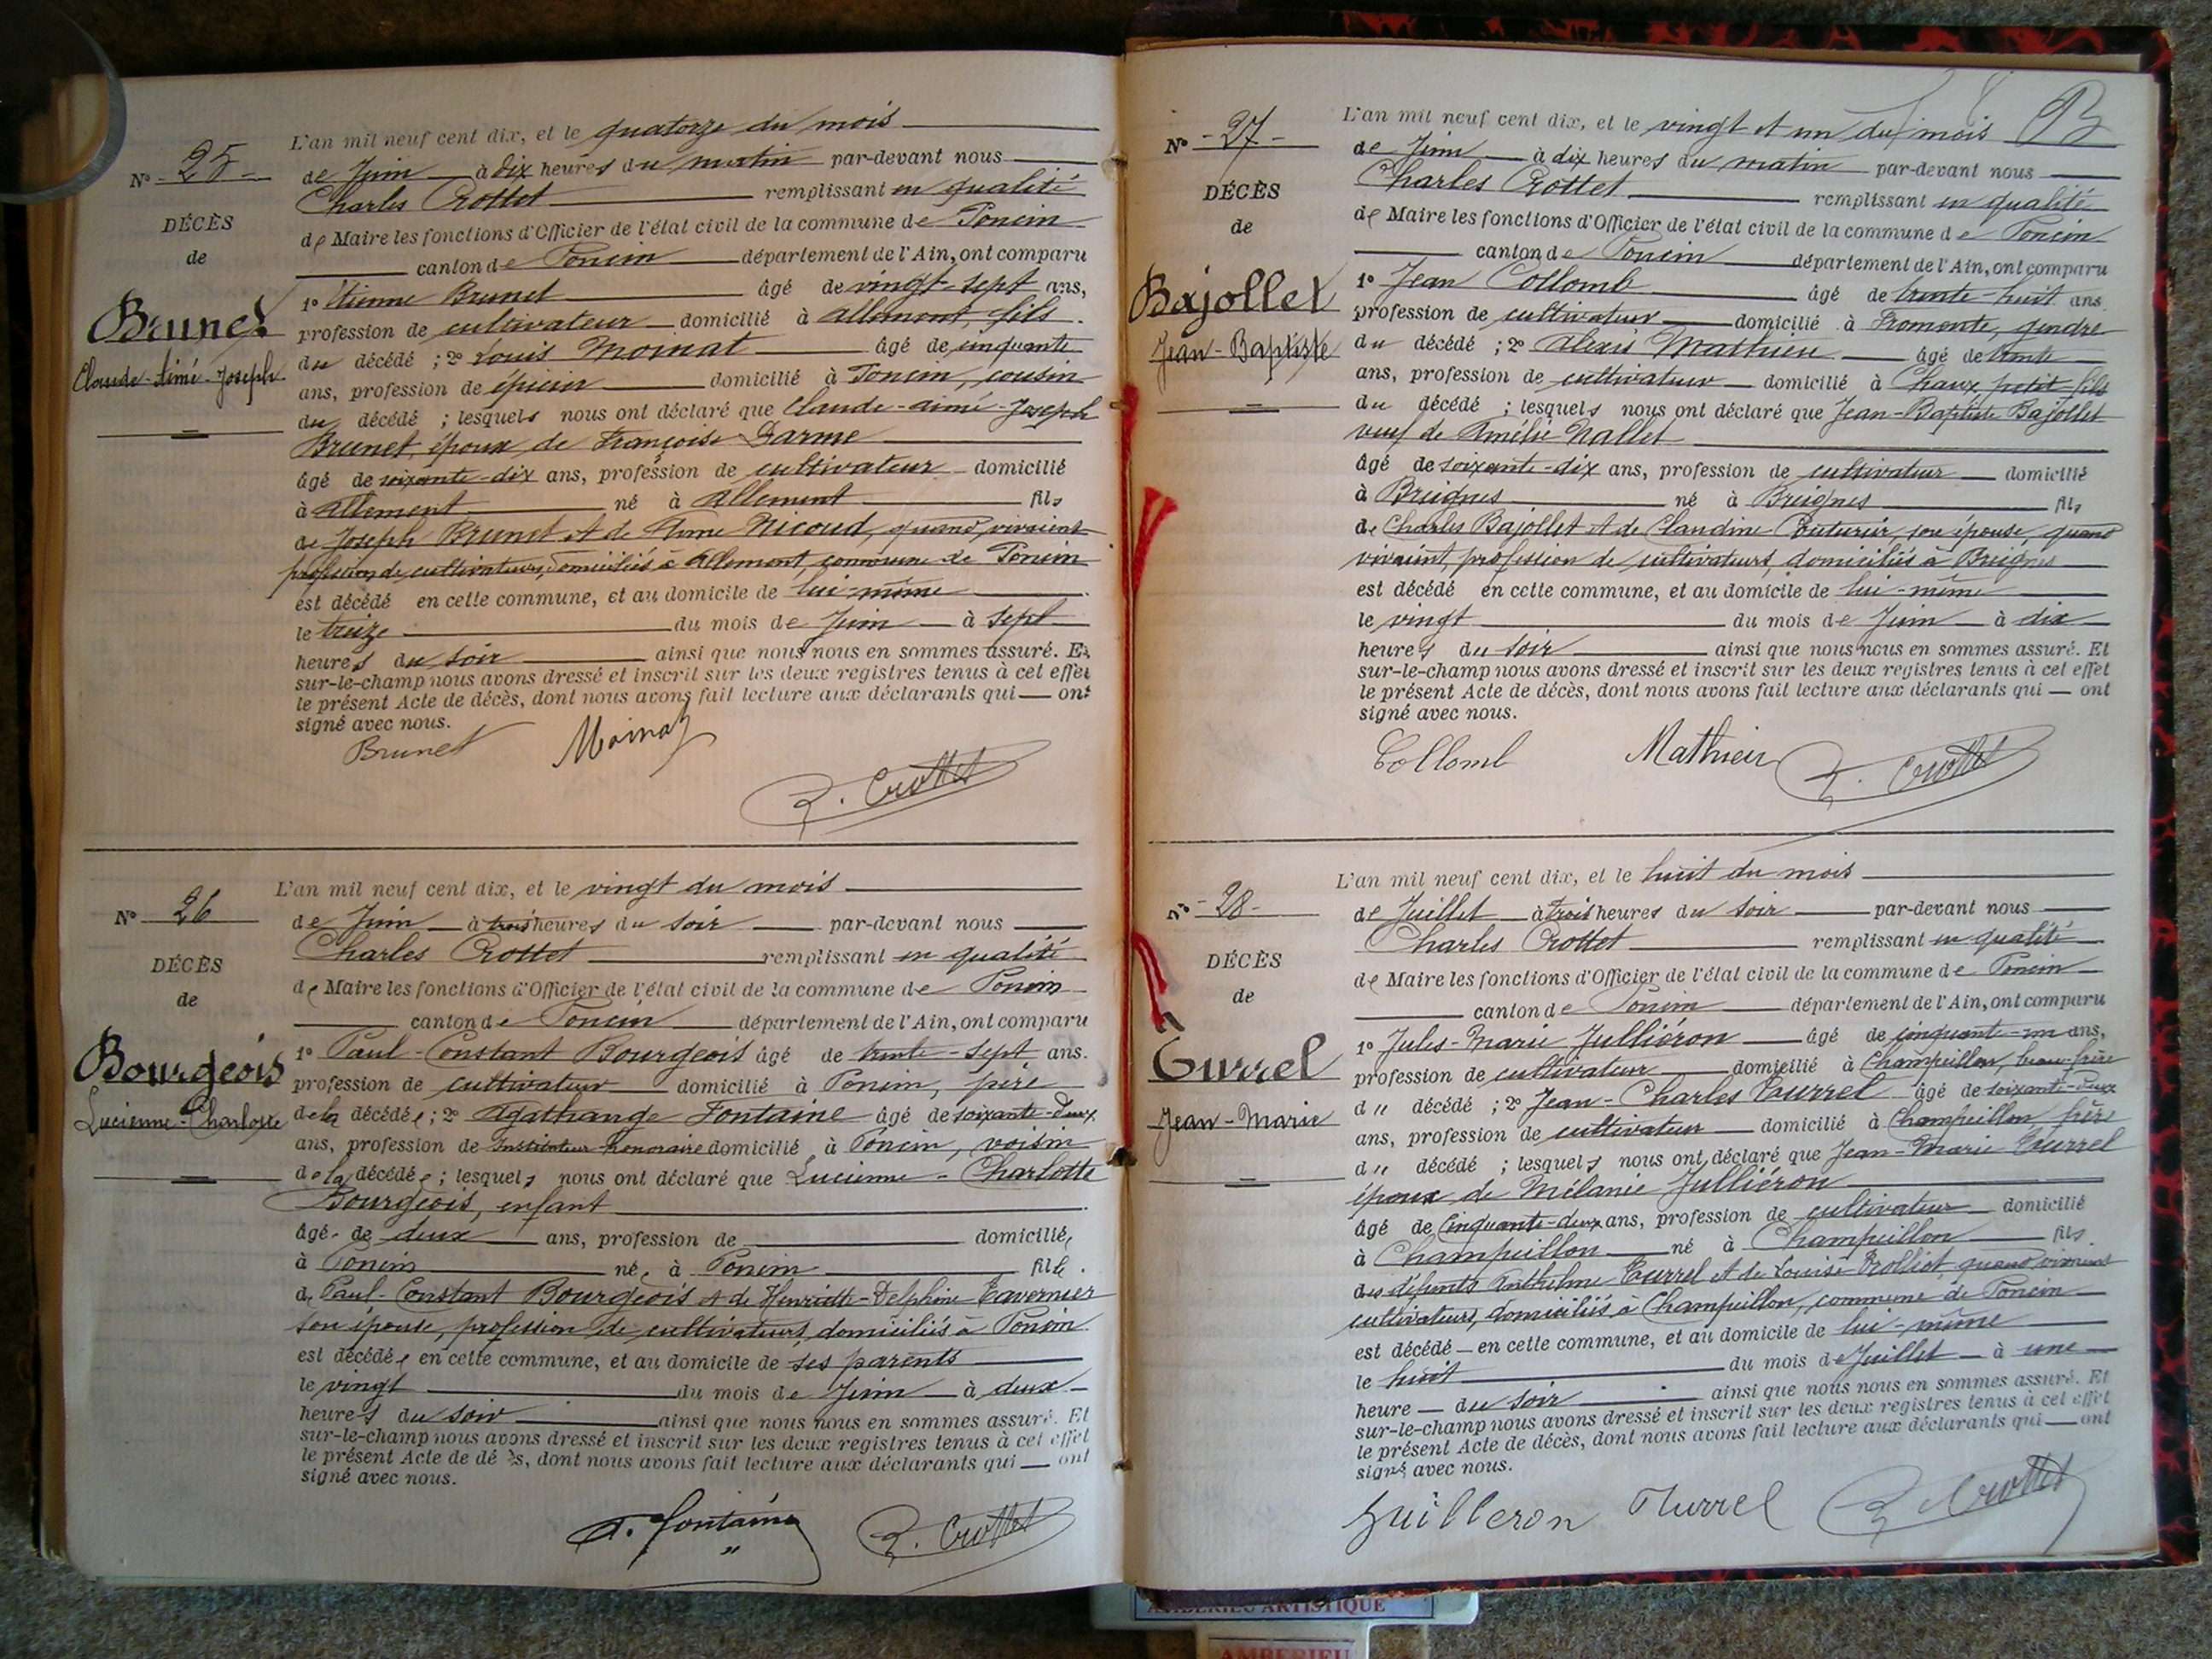 L'an mil neuf cent dix, et le quatorze du mois
N° - 25 -
de Juin à dix heures du matin par-devant nous
Charles Crottet remplissant en qualité
DÉCÈS
de Maire les fonctions d'Officier de l'état civil de la commune de Poncin
de
canton de Poncin département de l'Ain, ont comparu
1° Etienne Brunet âgé de vingt-sept ans,
Brunet
profession de cultivateur domicilié à Allement, fils
Claude-Aimé-Joseph
du décédé ; 2° Louis Moinat âgé de cinquante
ans, profession de épicier domicilié à Poncin, cousin
du décédé ; lesquels nous ont déclaré que Claude-Aimé-Joseph
Brunet, époux de Françoise Darme
âgé de soixante-dix ans, profession de cultivateur domicilié
à Allement né à Allement fils
de Joseph Brunet et de Anne Nicoud, quand vivaient
profession de cultivateurs, domiciliés à Allement, commune de Poncin
est décédé en cette commune, et au domicile de lui-même
le treize du mois de Juin à sept
heures du soir ainsi que nous nous en sommes assuré. Et
sur-le-champ nous avons dressé et inscrit sur les deux registres tenus à cet effet
le présent Acte de décès, dont nous avons fait lecture aux déclarants qui ont
signé avec nous.
Brunet Moinat
Crottet
L'an mil neuf cent dix, et le vingt du mois
N° 26
de Juin à trois heures du soir par-devant nous
Charles Crottet remplissant en qualité
DÉCÈS
de Maire les fonctions d'Officier de l'état civil de la commune de Poncin
de
canton de Poncin département de l'Ain, ont comparu
1° Paul-Constant Bourgeois âgé de trente-sept ans.
Bourgeois
profession de cultivateur domicilié à Poncin, père
Lucienne-Charlotte
de la décédée ; 2° Agathange Fontaine âgé de soixante-deux
ans, profession de Instituteur honoraire domicilié à Poncin, voisin
de la décédée ; lesquels nous ont déclaré que Lucienne-Charlotte
Bourgeois, enfant
âgée de deux ans, profession de domiciliée
à Poncin née à Poncin fille
de Paul-Constant Bourgeois et de Henriette-Delphine Tavernier
son épouse, profession de cultivateurs, domiciliés à Poncin
est décédée en cette commune, et au domicile de ses parents
le vingt du mois de Juin à deux
heures du soir ainsi que nous nous en sommes assuré. Et
sur-le-champ nous avons dressé et inscrit sur les deux registres tenus à cet effet
le présent Acte de décès, dont nous avons fait lecture aux déclarants qui ont
signé avec nous.
Fontaine Crottet
L'an mil neuf cent dix, et le vingt et un du mois
N° - 27 -
de Juin à dix heures du matin par-devant nous
Charles Crottet remplissant en qualité
DÉCÈS
de Maire les fonctions d'Officier de l'état civil de la commune de Poncin
de
canton de Poncin département de l'Ain, ont comparu
1° Jean Collomb âgé de trente-huit ans
Bajollet
profession de cultivateur domicilié à Fromente, gendre
Jean-Baptiste
du décédé ; 2° Alexis Mathieu âgé de trente
ans, profession de cultivateur domicilié à Chaux, petit-fils
du décédé ; lesquels nous ont déclaré que Jean-Baptiste Bajollet
veuf de Amélie Nallet
âgé de soixante-dix ans, profession de cultivateur domicilié
à Breignes né à Breignes fils
de Charles Bajollet et de Claudine Couturier, son épouse, quand
vivaient, profession de cultivateurs, domiciliés à Breignes
est décédé en cette commune, et au domicile de lui-même
le vingt du mois de Juin à dix
heures du soir ainsi que nous nous en sommes assuré. Et
sur-le-champ nous avons dressé et inscrit sur les deux registres tenus à cet effet
le présent Acte de décès, dont nous avons fait lecture aux déclarants qui ont
signé avec nous.
Collomb Mathieu Crottet
L'an mil neuf cent dix, et le huit du mois
N° - 28 -
de Juillet à trois heures du soir par-devant nous
Charles Crottet remplissant en qualité
DÉCÈS
de Maire les fonctions d'Officier de l'état civil de la commune de Poncin
de
canton de Poncin département de l'Ain, ont comparu
1° Jules-Marie Julliéron âgé de cinquante-un ans,
Turrel
profession de cultivateur domicilié à Champeillon, beau-frère
Jean-Marie
du décédé ; 2° Jean-Charles Turrel âgé de soixante-deux
ans, profession de cultivateur domicilié à Champeillon frère
du décédé ; lesquels nous ont déclaré que Jean-Marie Turrel
époux de Mélanie Julliéron
âgé de cinquante-deux ans, profession de cultivateur domicilié
à Champeillon né à Champeillon fils
des défunts Anthelme Turrel et de Louise Trolliot quand vivaient
cultivateurs, domiciliés à Champeillon, commune de Poncin
est décédé en cette commune, et au domicile de lui-même
le huit du mois de Juillet à une
heure du soir ainsi que nous nous en sommes assuré. Et
sur-le-champ nous avons dressé et inscrit sur les deux registres tenus à cet effet
le présent Acte de décès, dont nous avons fait lecture aux déclarants qui ont
signé avec nous.
Juilleron Turrel Crottet
AMBERIEU ARTISTIQUE
AMBERIEU